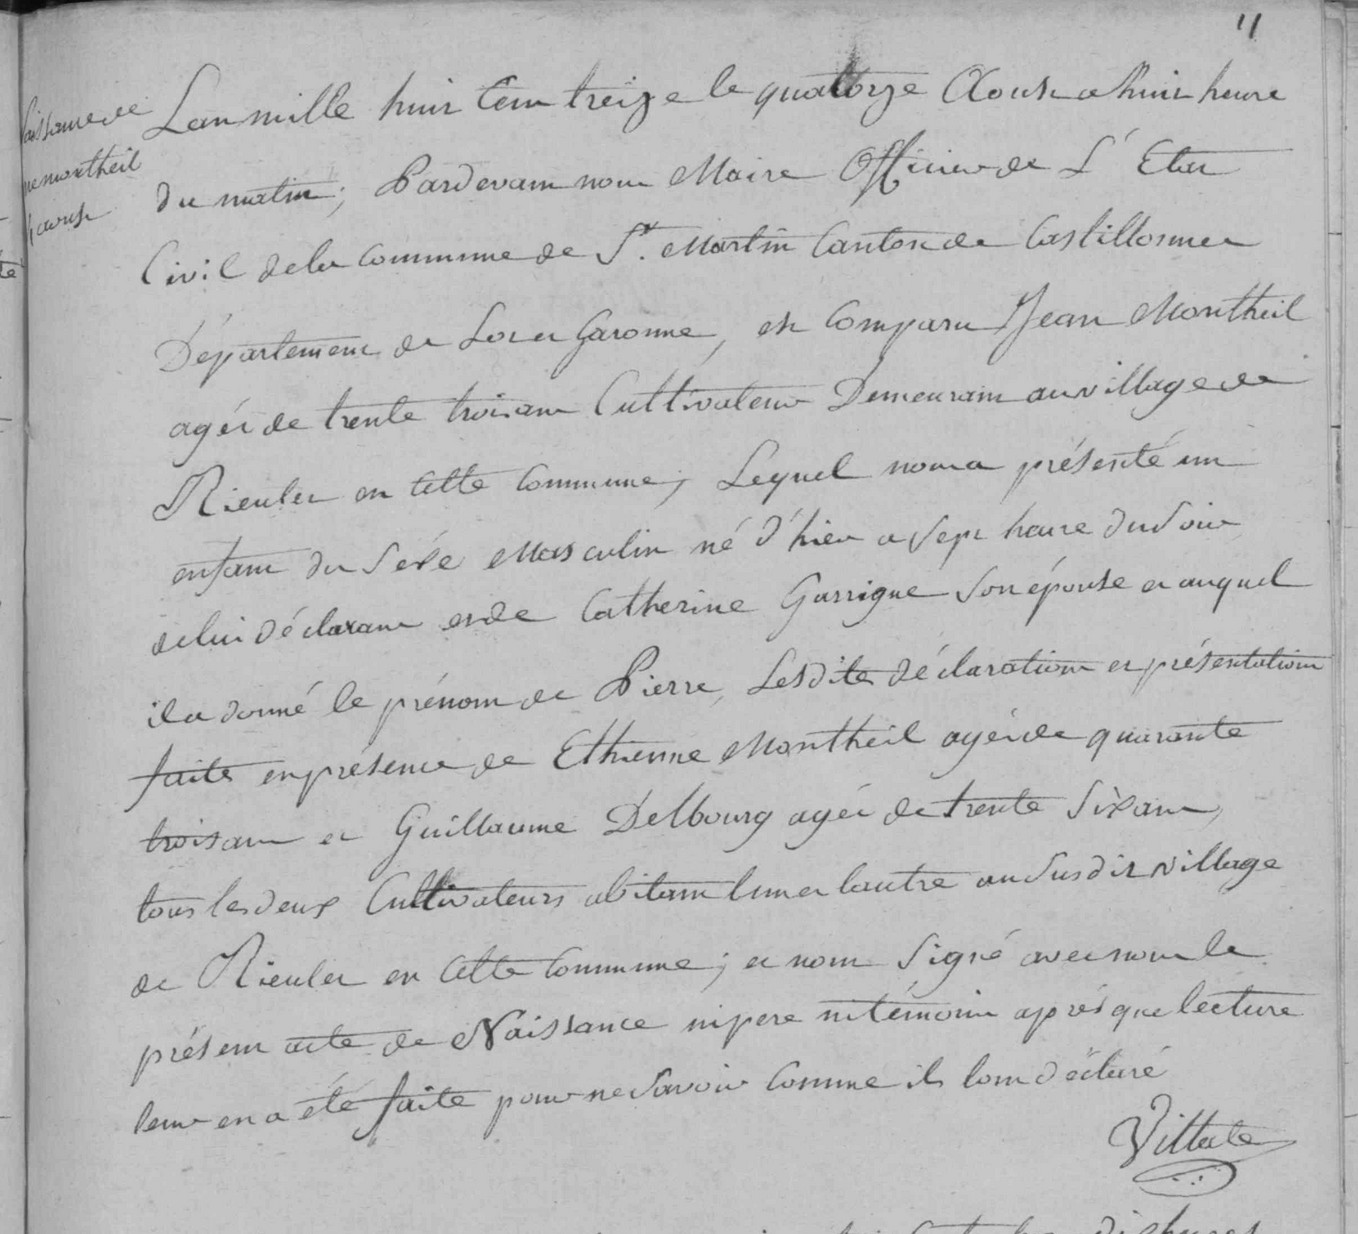 11
Lan mille huit Cent treize le quatorze Aoust a huit heure
du matin; Pardevant nous Maire Officier de L'Etat
Civil de la Commune de St. Martin Canton de Castillonnes
Département de Lot et Garonne, est Comparu Jean Montheil
agéé de trente trois ans Cultivateur Demeurant au village de
Rieulet en Cette Commune; Lequel nous a présenté un
enfant du Séxe Masculin né d'hier a Sept heure du Soir
de lui déclarant et de Catherine Garrigue Son épouse et auquel
il a donné le prénom de Pierre, Lesdite déclaration et présentation
faite en présence de Ethienne Montheil agé de quarante
trois ans et Guillaume Delbourg agéé de trente Six ans,
tous les deux Cultivateurs abitant lun et lautre au Susdit village
de Rieulet en Cette Commune; et nont Signé avec nous le
présent acte de Naissance ni pere ni témoin aprés que lecture
leur en a été faite pour ne Savoir Comme ils lont déclaré
Naissance de
montheil
aoust